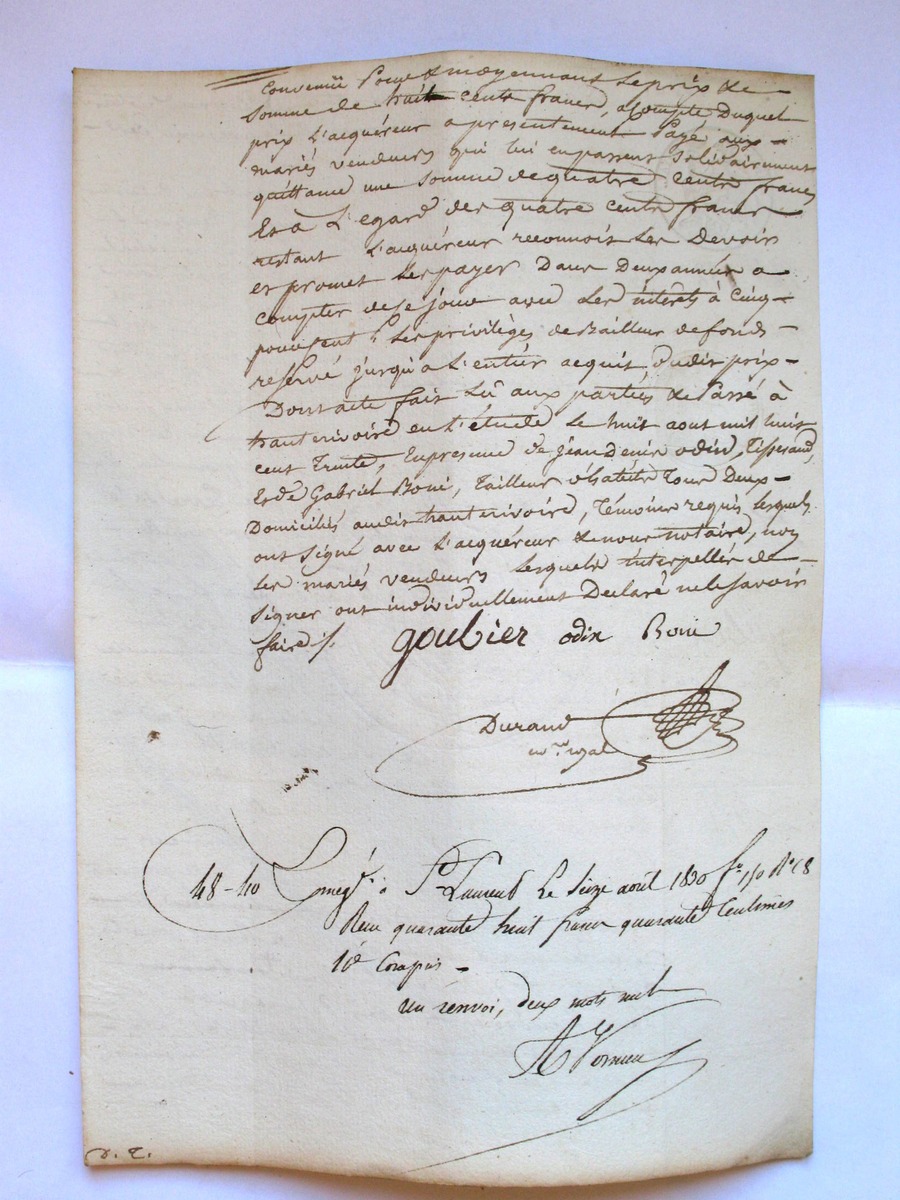 Convenüe Pour & moÿennant Le prix &
Somme de huit cents francs, acompte Duquel
prix L'acquéreur a presentement Payé aux
mariés vendeurs qui lui en passent solidairement
quittance une somme de quatre cents francs
Et à L'egard des quatre cents francs
restant L'acquéreur reconnois Les Devoir
et promet Les payer Dans Deux années a
compter de ce jour avec Les interets à cinq
pour cent & Les privilèges de Bailleur de fonds
reservé jusqu'a L'entier acquit Dudit prix
Dont acte fait Lû aux parties & Passé à
hauterivoire en L'étude Le huit aout mil huit
cent Trente, En presence de jean Denis odin, Tisserand,
Et de Gabriel Boni, Tailleur d'habits Tous Deux
Domiciliés audit hauterivoire, Témoins requis Lesquels
ont signé avec L'acquéreur & nous notaire, non
Les mariés vendeurs Lesquels interpellés de
signer ont individuellement Declaré ne le savoir
faire /.
goubier odin Boni
Durand
no.re royal
48-40 Enreg.é à St Laurent Le Seize août 1830 f° 150 R° C8
Reçu quarante huit francs quarante Centimes
10e Compris
un renvoi, deux mots nuls
D. T.